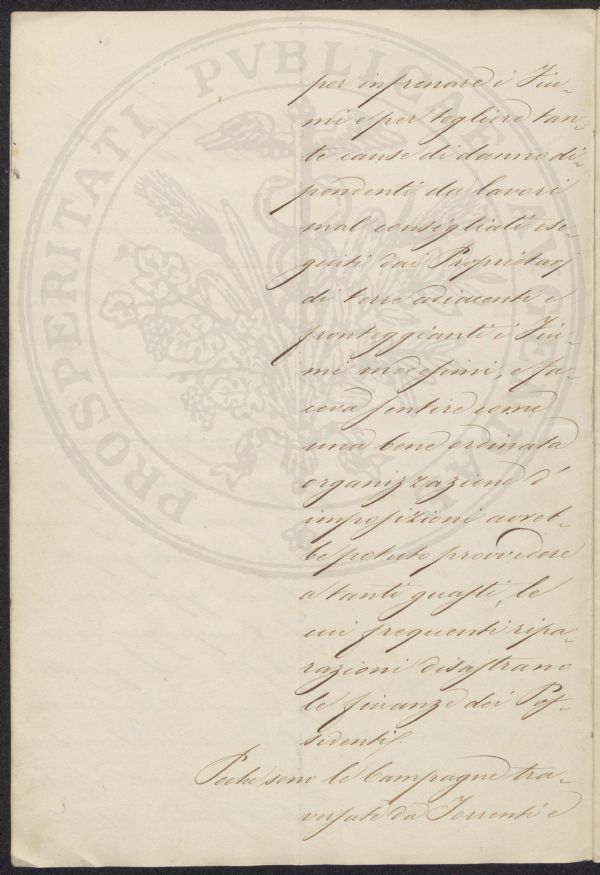 per infrenare i Fiu-
mi e per togliere tan-
te cause di danno di-
pendenti da lavori
mal consigliati ese-
guiti dai Proprietarj
di terre adiacenti e
fronteggianti i Fiu-
mi medesimi, e fa-
ceva sentire come
una bene ordinata
organizzazione d'
imposizioni avreb-
be potuto provvedere
a tanti guasti, le
cui frequenti ripa-
razioni disastrano
le finanze dei Pos-
sidenti.
Poche sono le Campagne tra-
versate da Torrenti e
PROSPERITATI PVBLICAE AVGENDAE